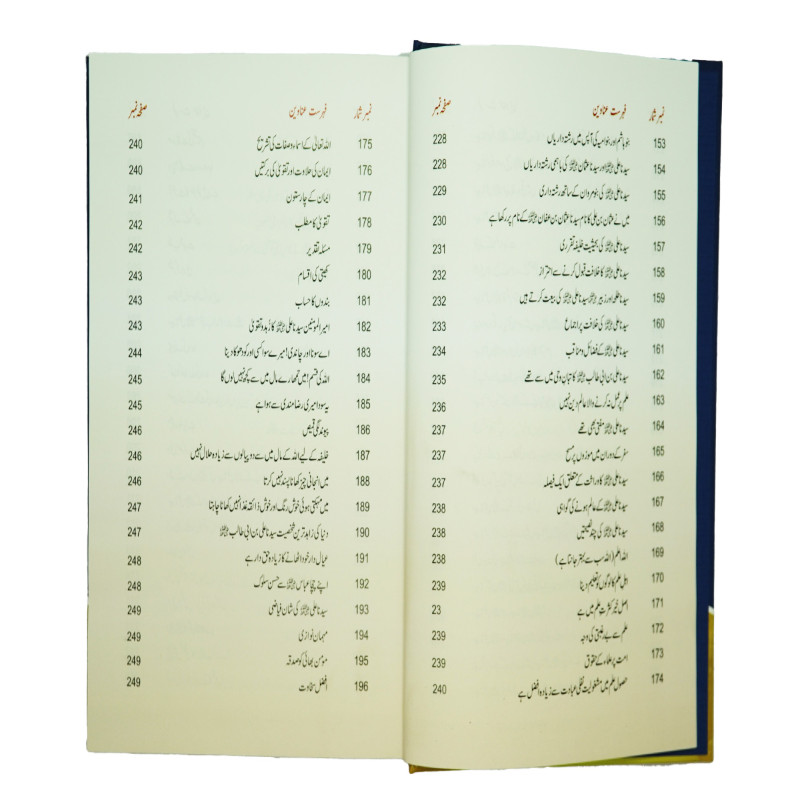 نمبر شمار فہرست عناوین صفحہ نمبر
153 بنو ہاشم اور بنو امیہ کی آپس میں رشتہ داریاں 228
154 سیدنا علی رضی اللہ عنہ اور سیدنا عثمان رضی اللہ عنہ کی باہمی رشتہ داریاں 228
155 سیدنا علی رضی اللہ عنہ کی بنو مروان کے ساتھ رشتہ داری 229
156 میں نے عثمان بن علی کا نام سیدنا عثمان بن عفان رضی اللہ عنہ کے نام پر رکھا ہے 230
157 سیدنا علی رضی اللہ عنہ کی بحیثیت خلیفہ تقرری 231
158 سیدنا علی رضی اللہ عنہ کا خلافت قبول کرنے سے احتراز 232
159 سیدنا طلحہ اور زبیر رضی اللہ عنہما سیدنا علی رضی اللہ عنہ کی بیعت کرتے ہیں 232
160 سیدنا علی رضی اللہ عنہ کی خلافت پر اجماع 233
161 سیدنا علی رضی اللہ عنہ کے فضائل و مناقب 234
162 سیدنا علی بن ابی طالب رضی اللہ عنہ کاتبان وحی میں سے تھے 235
163 علم پر عمل نہ کرنے والا عالم دین نہیں 236
164 سیدنا علی رضی اللہ عنہ مفتی بھی تھے 237
165 سفر کے دوران میں موزوں پر مسح 237
166 سیدنا علی رضی اللہ عنہ کا وراثت کے متعلق ایک فیصلہ 237
167 سیدنا علی رضی اللہ عنہ کے عالم ہونے کی گواہی 238
168 سیدنا علی رضی اللہ عنہ کی چند نصیحتیں 238
169 اللہ اعلم (اللہ سب سے بہتر جانتا ہے) 238
170 اہل علم کا لوگوں کو تعلیم دینا 239
171 اصل خیر کثرتِ علم میں ہے 23
172 علم سے بے رغبتی کی وجہ 239
173 امت پر علماء کے حقوق 239
174 حصول علم میں مشغولیت نفلی عبادت سے زیادہ افضل ہے 240
نمبر شمار فہرست عناوین صفحہ نمبر
175 اللہ تعالیٰ کے اسماء و صفات کی تشریح 240
176 ایمان کی حلاوت اور تقویٰ کی برکتیں 240
177 ایمان کے چار ستون 241
178 تقویٰ کا مطلب 242
179 مسئلہ تقدیر 242
180 کھیتی کی اقسام 243
181 بندوں کا حساب 243
182 امیر المومنین سیدنا علی رضی اللہ عنہ کا زہد و تقویٰ 243
183 اے سونا اور چاندی! میرے سوا کسی اور کو دھوکا دینا 244
184 اللہ کی قسم! میں تمھارے مال میں سے کچھ نہیں لوں گا 245
185 یہ سودا میری رضامندی سے ہوا ہے 245
186 پیوند لگی قمیص 246
187 خلیفہ کے لیے اللہ کے مال میں سے دو پیالوں سے زیادہ حلال نہیں 246
188 میں انجانی چیز کھانا پسند نہیں کرتا 246
189 میں مہکتی ہوئی خوش رنگ اور خوش ذائقہ غذا نہیں کھانا چاہتا 247
190 دنیا کی زاہد ترین شخصیت سیدنا علی بن ابی طالب رضی اللہ عنہ 247
191 عیال دار خود اٹھانے کا زیادہ حق دار ہے 248
192 اپنے چچا عباس رضی اللہ عنہ سے حسن سلوک 248
193 سیدنا علی رضی اللہ عنہ کی شان فیاضی 249
194 مہمان نوازی 249
195 مومن بھائی کو صدقہ 249
196 افضل سخاوت 249